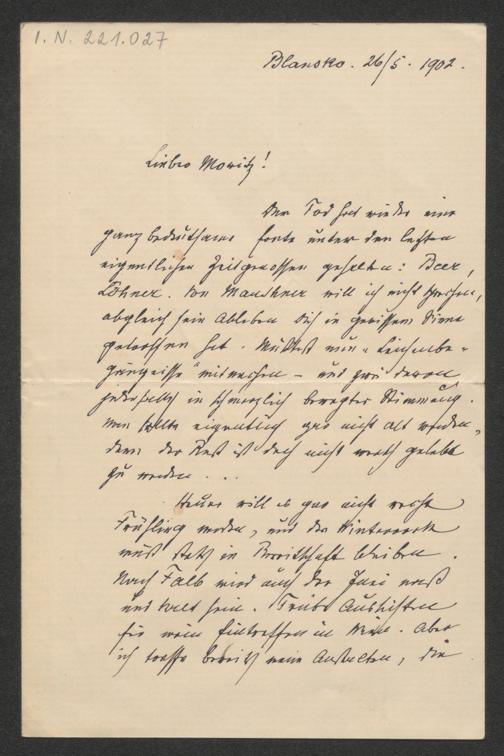 I. N. 221.027
Blansko. 26/5. 1902.
Lieber Moritz!
Der Tod hat wieder eine
ganz bedeutsame Ernte unter den letzten
eigentlichen Zeitgenossen gehalten: Beer,
Löhner. Von Mauthner will ich nicht sprechen,
obgleich sein Ableben Dich in gewissem Sinne
getroffen hat. Mußtest nun "Leichenbe-
gängnisse" mitmachen – und zwei davon
jedesfalls in schmerzlich bewegter Stimmung.
Man sollte eigentlich gar nicht alt werden,
denn der Rest ist doch nicht werth gelebt
zu werden . . .
Heuer will es gar nicht recht
Frühling werden, und der Winterrock
muß stets in Bereitschaft bleiben.
Nach Falb wird auch der Juni naß
und kalt sein. Trübe Aussichten
für mein Eintreffen in Wien. Aber
ich treffe bereits meine Anstalten, die